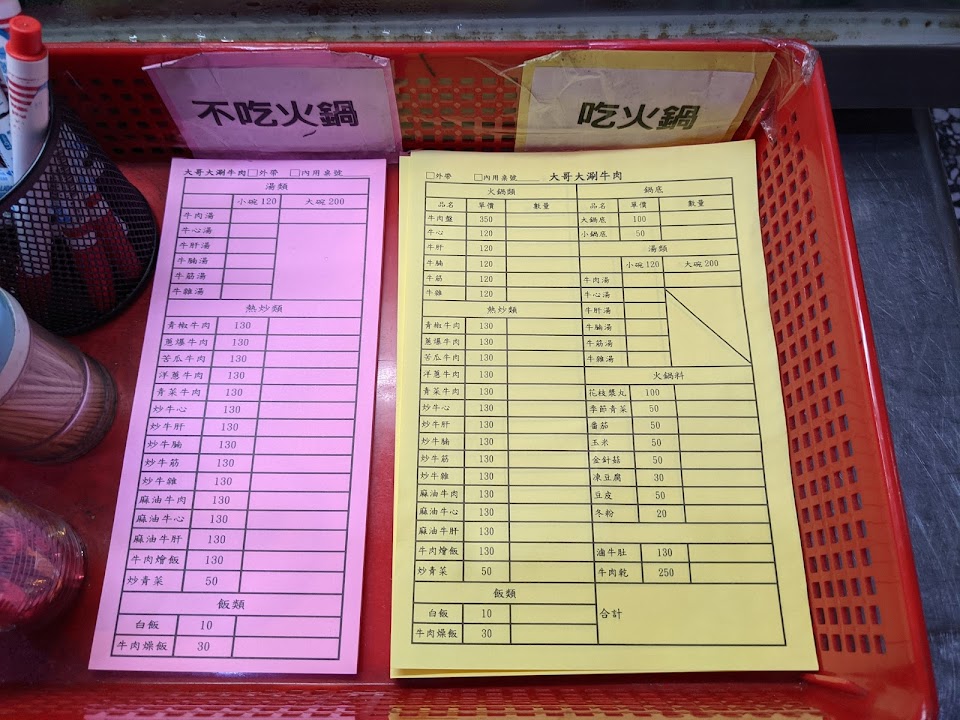 不吃火鍋
吃火鍋
大哥大涮牛肉 □外帶 □內用桌號
湯類
小碗120 大碗200
牛肉湯
牛心湯
牛肝湯
牛腩湯
牛筋湯
牛雜湯
熱炒類
青椒牛肉 130
蔥爆牛肉 130
苦瓜牛肉 130
洋蔥牛肉 130
青菜牛肉 130
炒牛心 130
炒牛肝 130
炒牛腩 130
炒牛筋 130
炒牛雜 130
麻油牛肉 130
麻油牛心 130
麻油牛肝 130
牛肉燴飯 130
炒青菜 50
飯類
白飯 10
牛肉燥飯 30
□外帶 □內用桌號 大哥大涮牛肉
火鍋類
品名 單價 數量
牛肉盤 350
牛心 120
牛肝 120
牛腩 120
牛筋 120
牛雜 120
熱炒類
青椒牛肉 130
蔥爆牛肉 130
苦瓜牛肉 130
洋蔥牛肉 130
青菜牛肉 130
炒牛心 130
炒牛肝 130
炒牛腩 130
炒牛筋 130
炒牛雜 130
麻油牛肉 130
麻油牛心 130
麻油牛肝 130
牛肉燴飯 130
炒青菜 50
飯類
白飯 10
牛肉燥飯 30
鍋底
品名 單價 數量
大鍋底 100
小鍋底 50
湯類
小碗120 大碗200
牛肉湯
牛心湯
牛肝湯
牛腩湯
牛筋湯
牛雜湯
火鍋料
花枝漿丸 100
季節青菜 50
番茄 50
玉米 50
金針菇 50
凍豆腐 30
豆皮 50
冬粉 20
滷牛肚 130
牛肉乾 250
合計